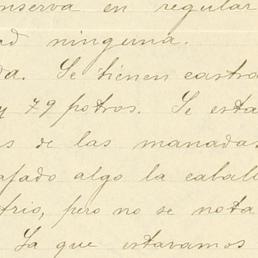 nserva en regular
ad ninguna.
da. Se tienen castra
y 79 potros. Se esta
s de las manadas
afado algo la caball
trio, pero no se nota
Ya que estavamos